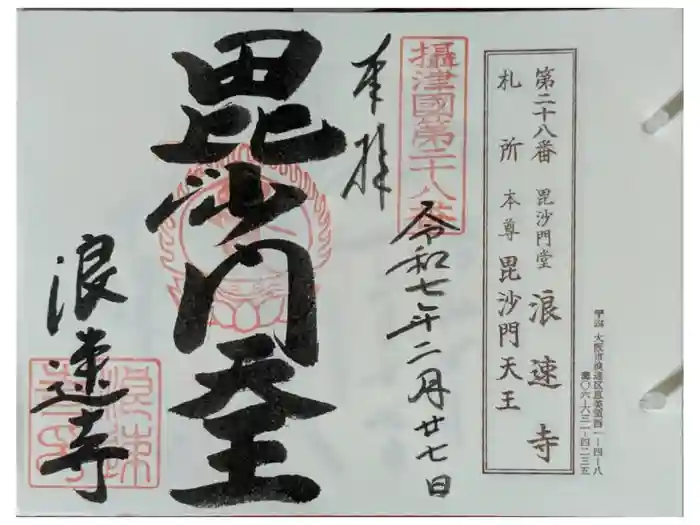 第二十八番 毘沙門堂 浪速寺
札所 本尊 毘沙門天王
大阪市浪速区恵美須西一-四-八
電〇六-六三一-四二三五
攝津國第二十八番
奉拝
令和七年二月廿七日
毘沙門天王
浪速寺